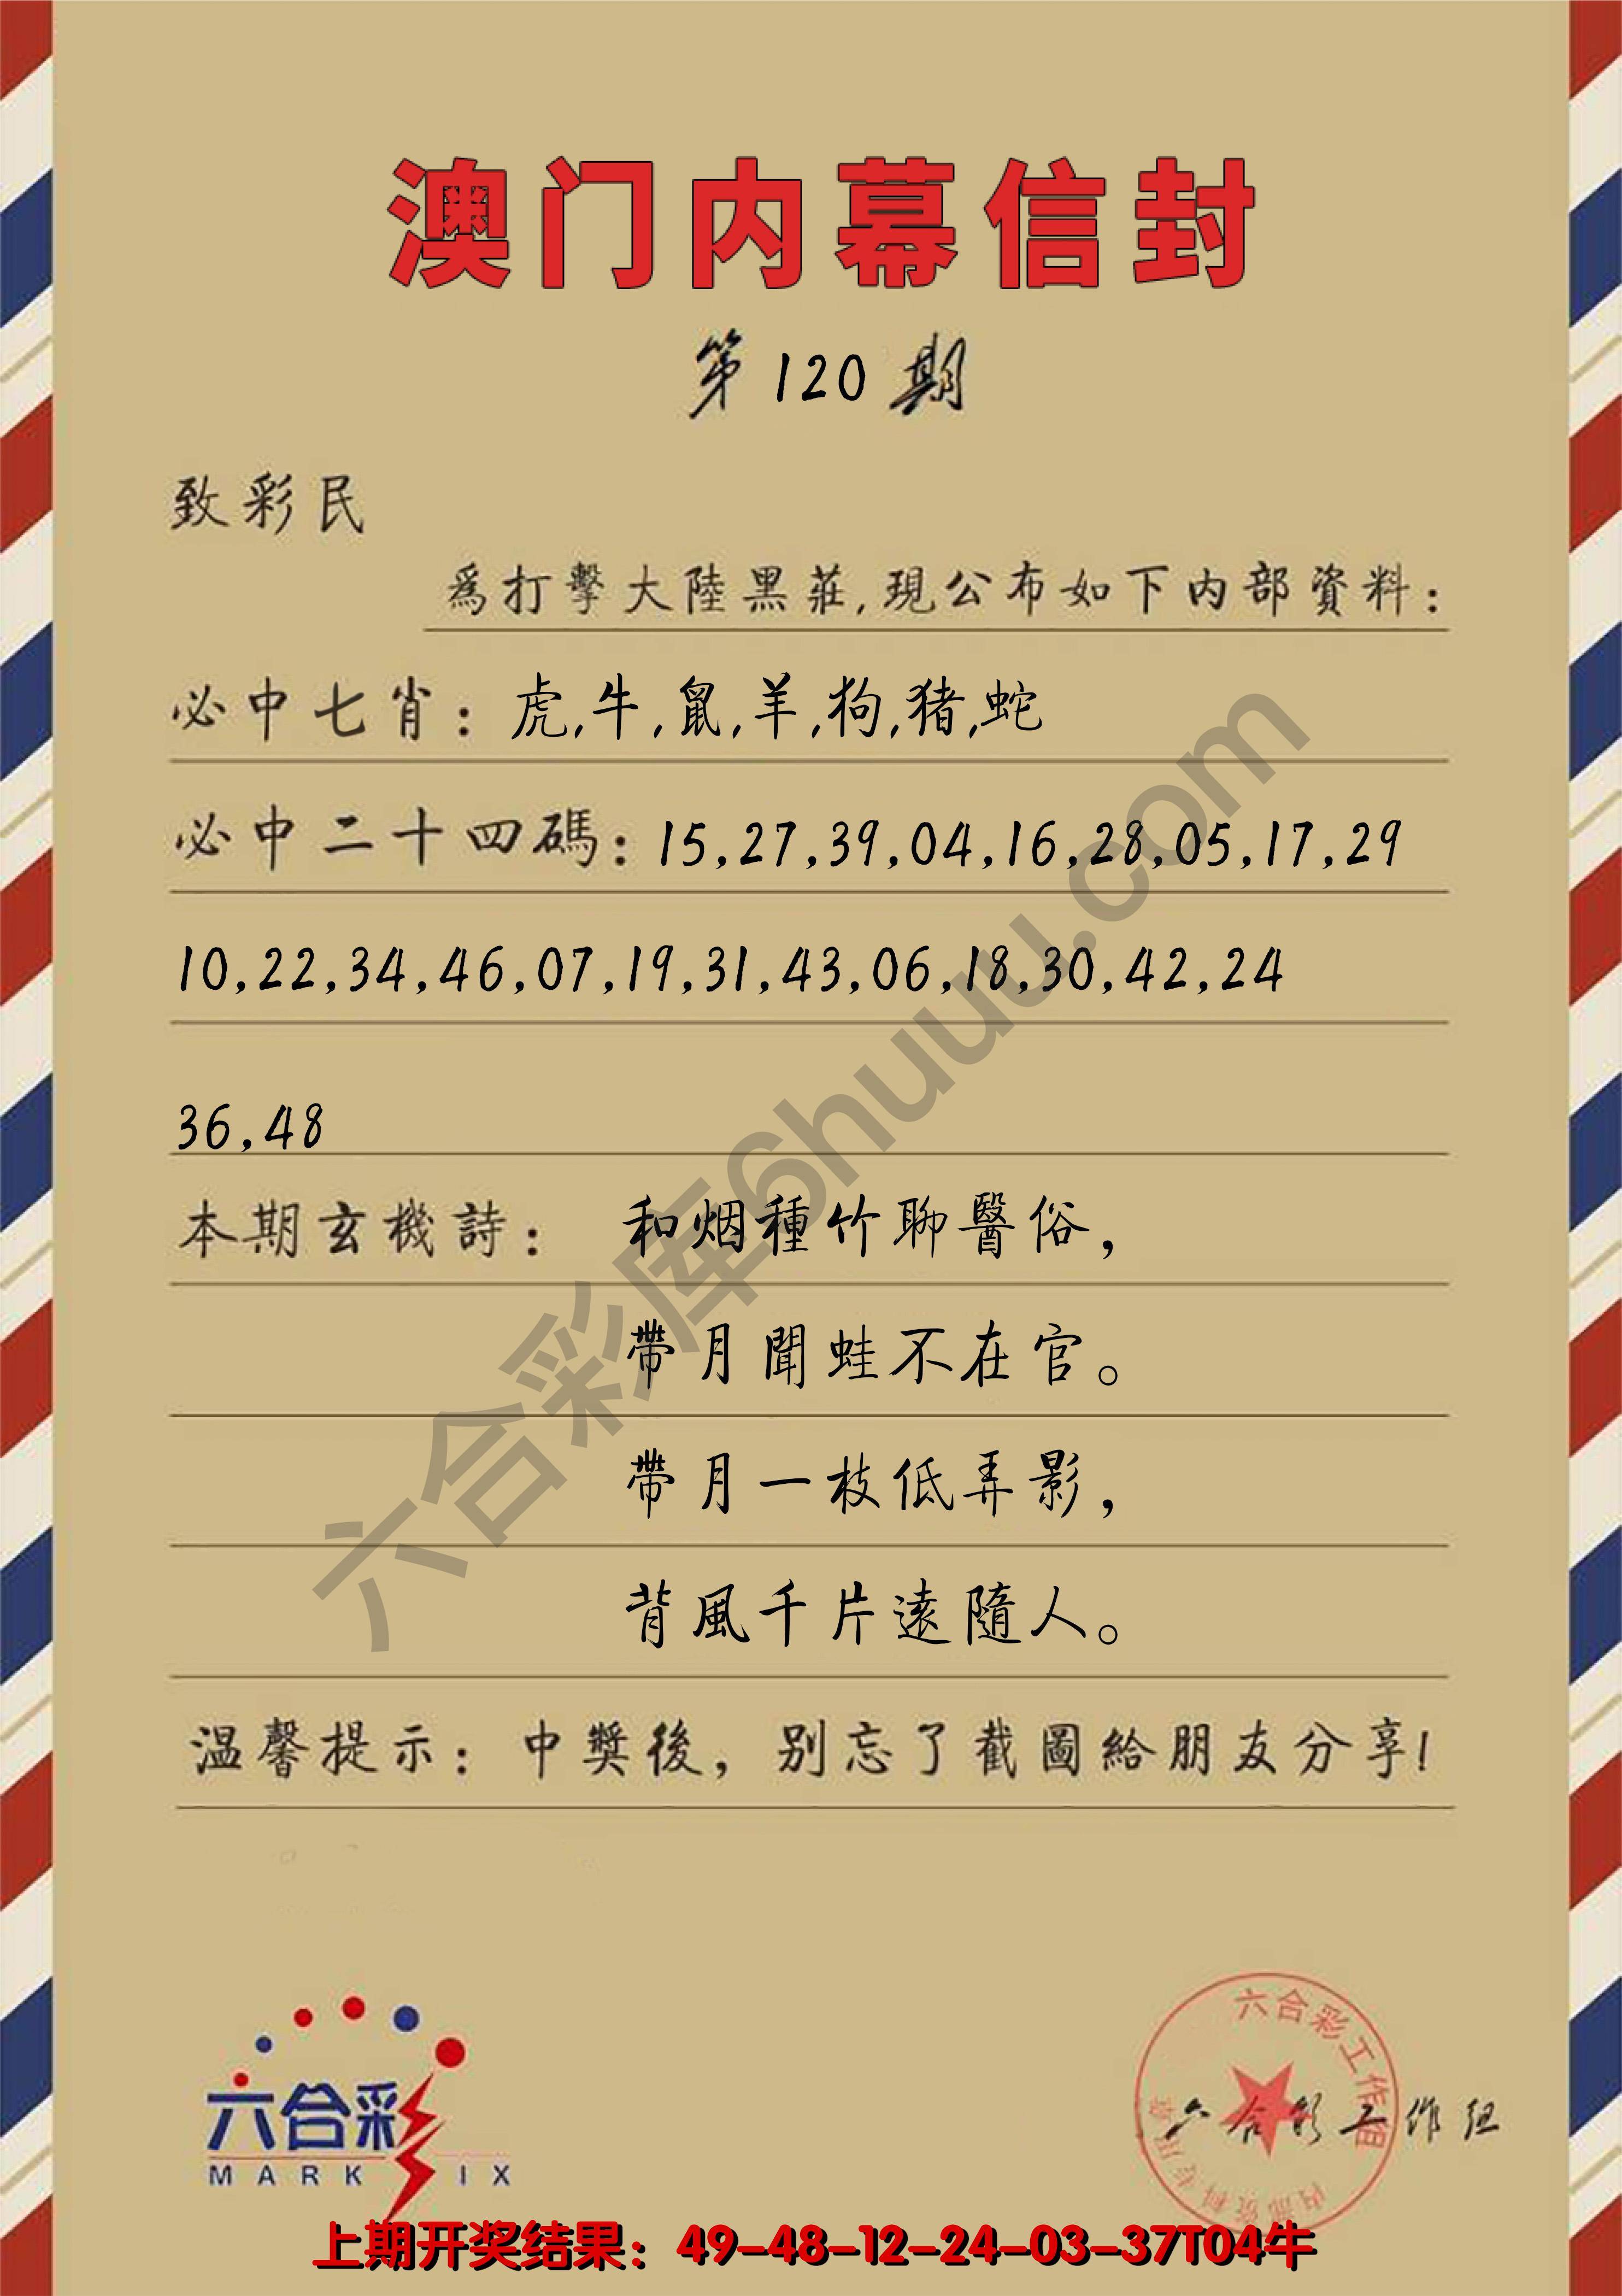 澳门内幕信封
第120期
致彩民
爲打擊大陸黑莊,現公布如下内部資料:
必中七肖: 虎,牛,鼠,羊,狗,猪,蛇
必中二十四碼: 15,27,39,04,16,28,05,17,29
10,22,34,46,07,19,31,43,06,18,30,42,24
36,48
本期玄機詩: 和烟種竹聊醫俗,
帶月聞蛙不在官。
帶月一枝低弄影,
背風千片遠隨人。
温馨提示: 中獎後, 别忘了截圖給朋友分享!
六合彩库6huuu.com
六合彩
MARK IX
六合彩工作组
内部资料专用章
六合彩工作组
上期开奖结果: 49-48-12-24-03-37T04牛